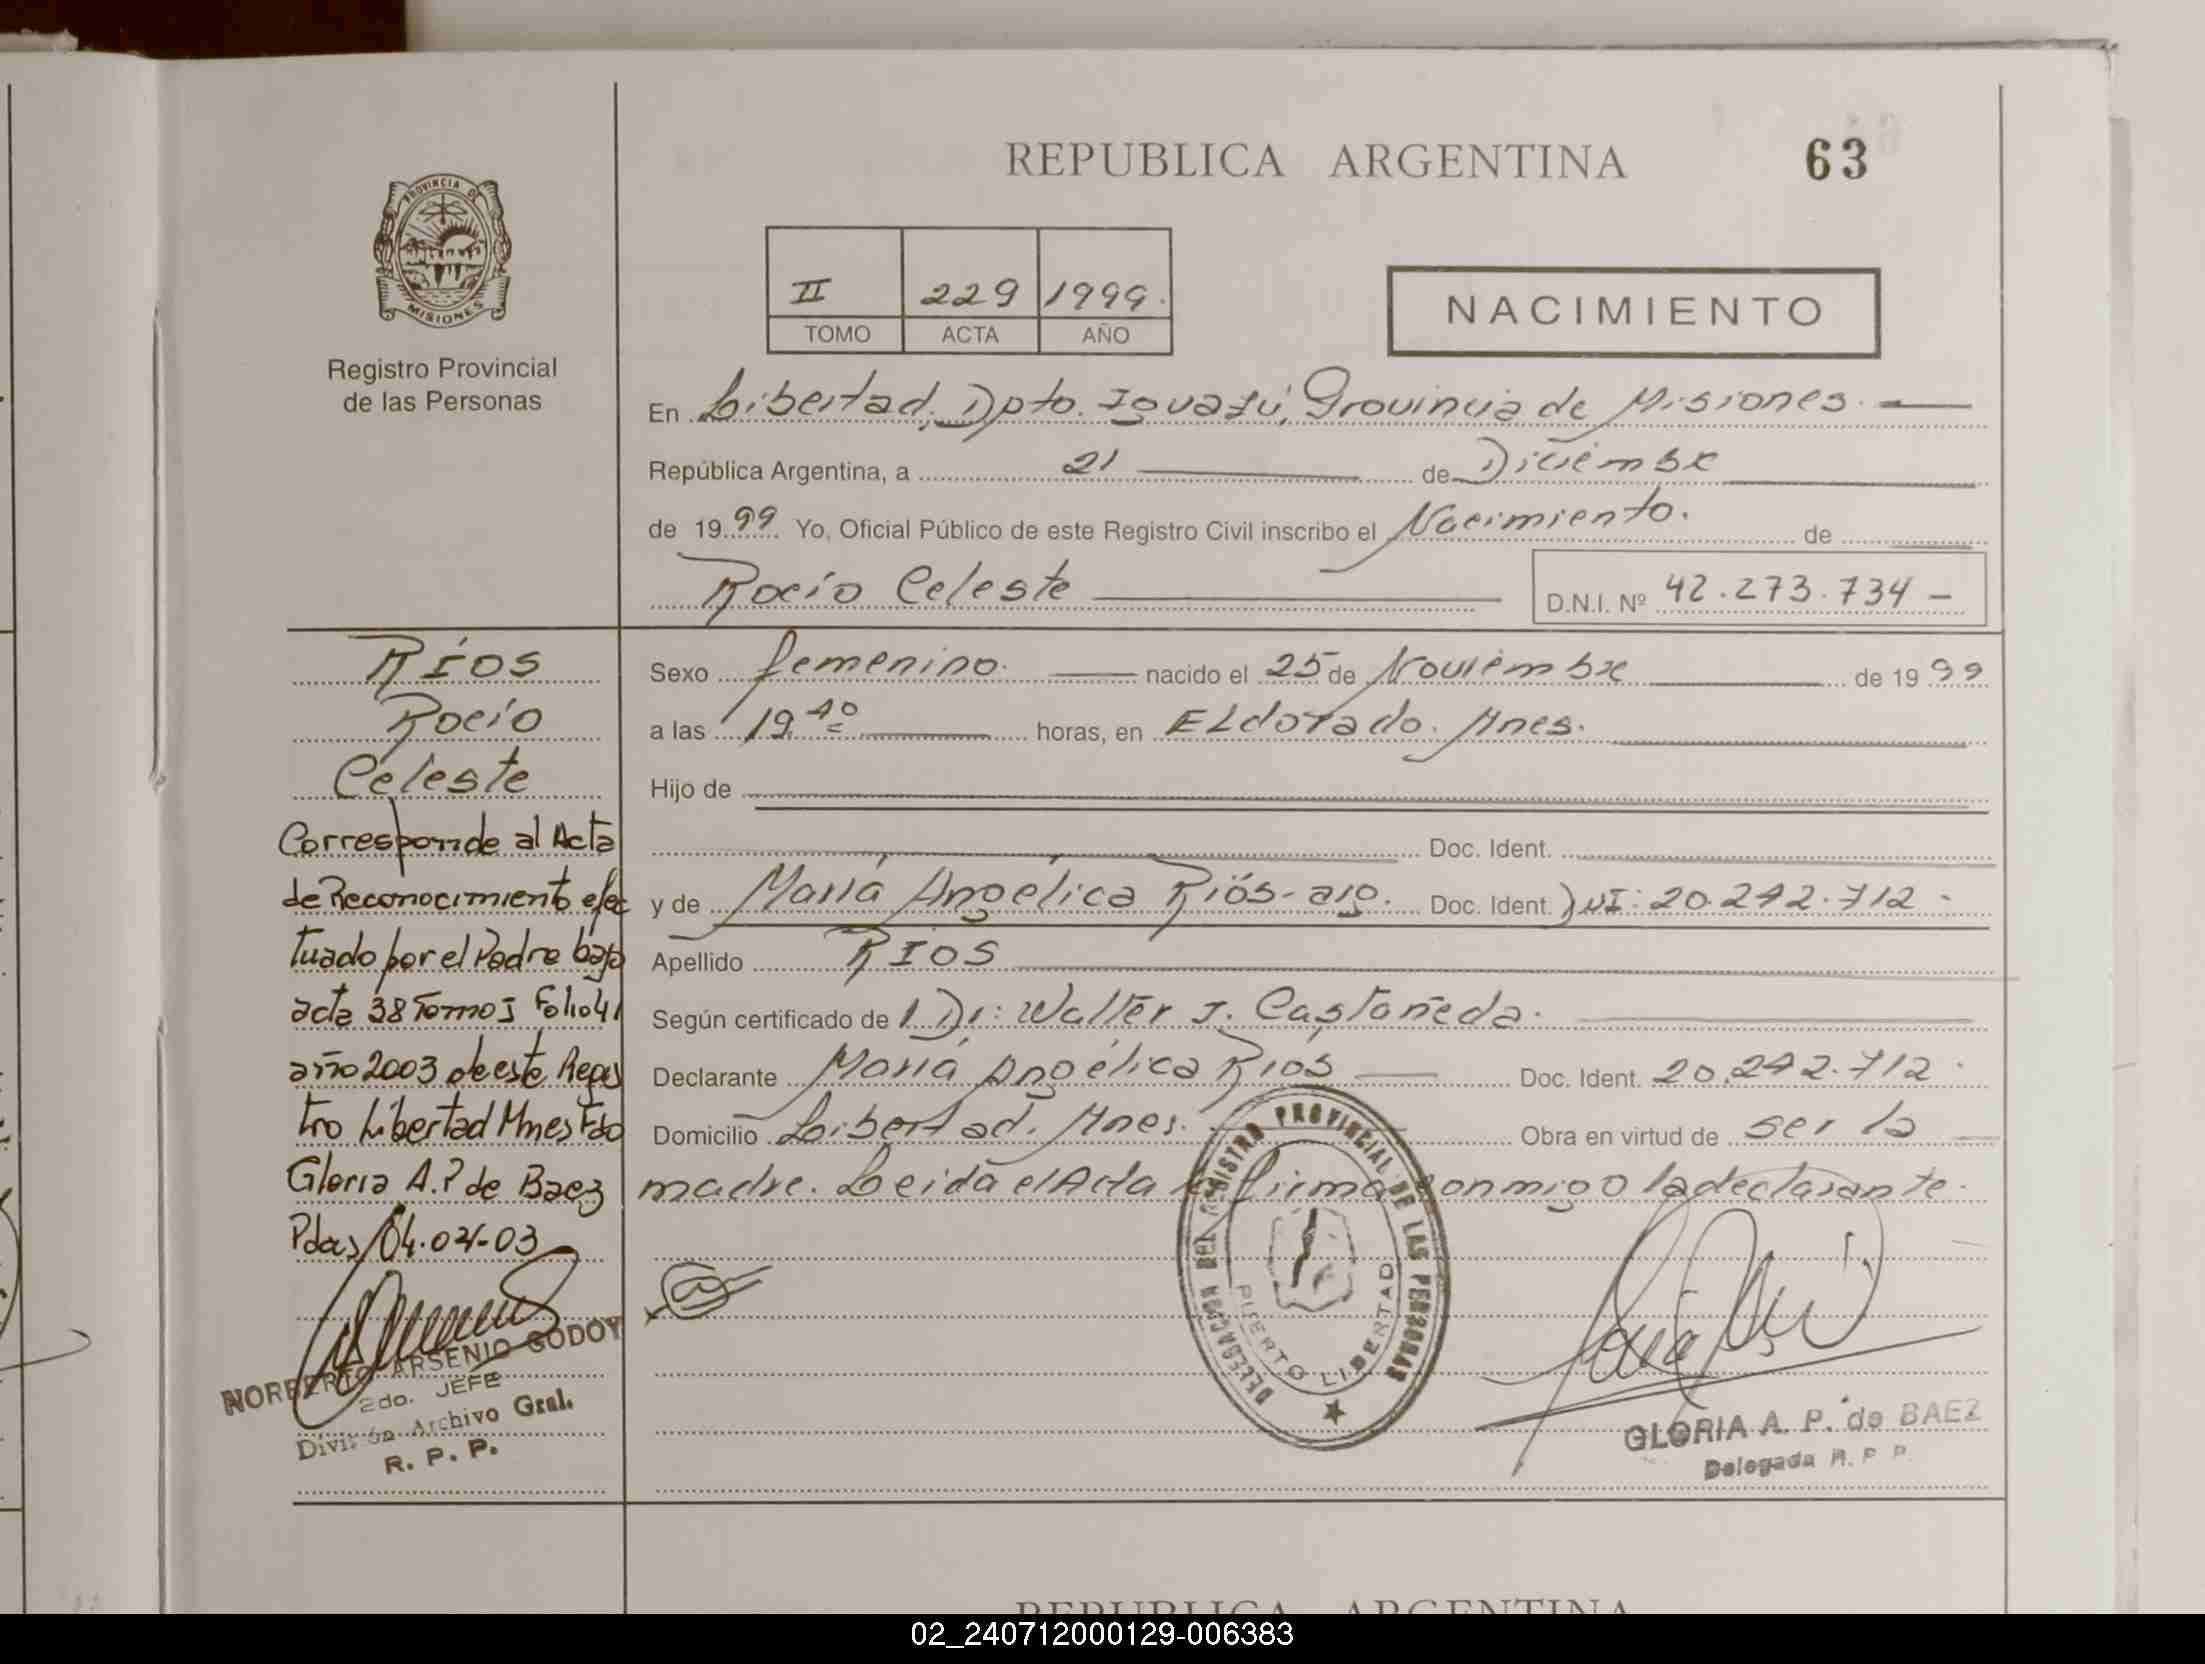 REPUBLICA ARGENTINA
63
PROVINCIA DE
MISIONES
Registro Provincial
de las Personas
II 229 1999.
TOMO ACTA AÑO
NACIMIENTO
En Libertad, Dpto. Iguazú, Provincia de Misiones.
República Argentina, a 21 de Diciembre
de 1999 Yo, Oficial Público de este Registro Civil inscribo el Nacimiento. de
Rocío Celeste
D.N.I. Nº 42.273.734 -
Ríos
Rocío
Celeste
Corresponde al Acta
de Reconocimiento efec
tuado por el Padre bajo
acta 38 Tomo I Folio 41
año 2003 de este Regis
tro Libertad Mnes Fdo
Gloria A.P. de Baez
Pdas/04-04-03
NORBERTO ARSENIO GODOY
2do. JEFE
División Archivo Gral.
R. P. P.
Sexo femenino. nacido el 25 de Noviembre de 1999
a las 19.40 horas, en Eldorado. Mnes.
Hijo de
Doc. Ident.
y de María Angélica Ríos- arg. Doc. Ident. DNI: 20.242.712 -
Apellido RIOS
Según certificado de l Dr: Walter J. Castañeda.
Declarante María Angélica Ríos Doc. Ident. 20.242.712.
Domicilio Libertad. Mnes. Obra en virtud de ser la
madre. Leida el Acta la firma conmigo la declarante.
DELEGACION DEL REGISTRO PROVINCIAL DE LAS PERSONAS
PUERTO LIBERTAD
GLORIA A. P. de BAEZ
Delegada R. P. P.
REPUBLICA ARGENTINA
02_240712000129-006383